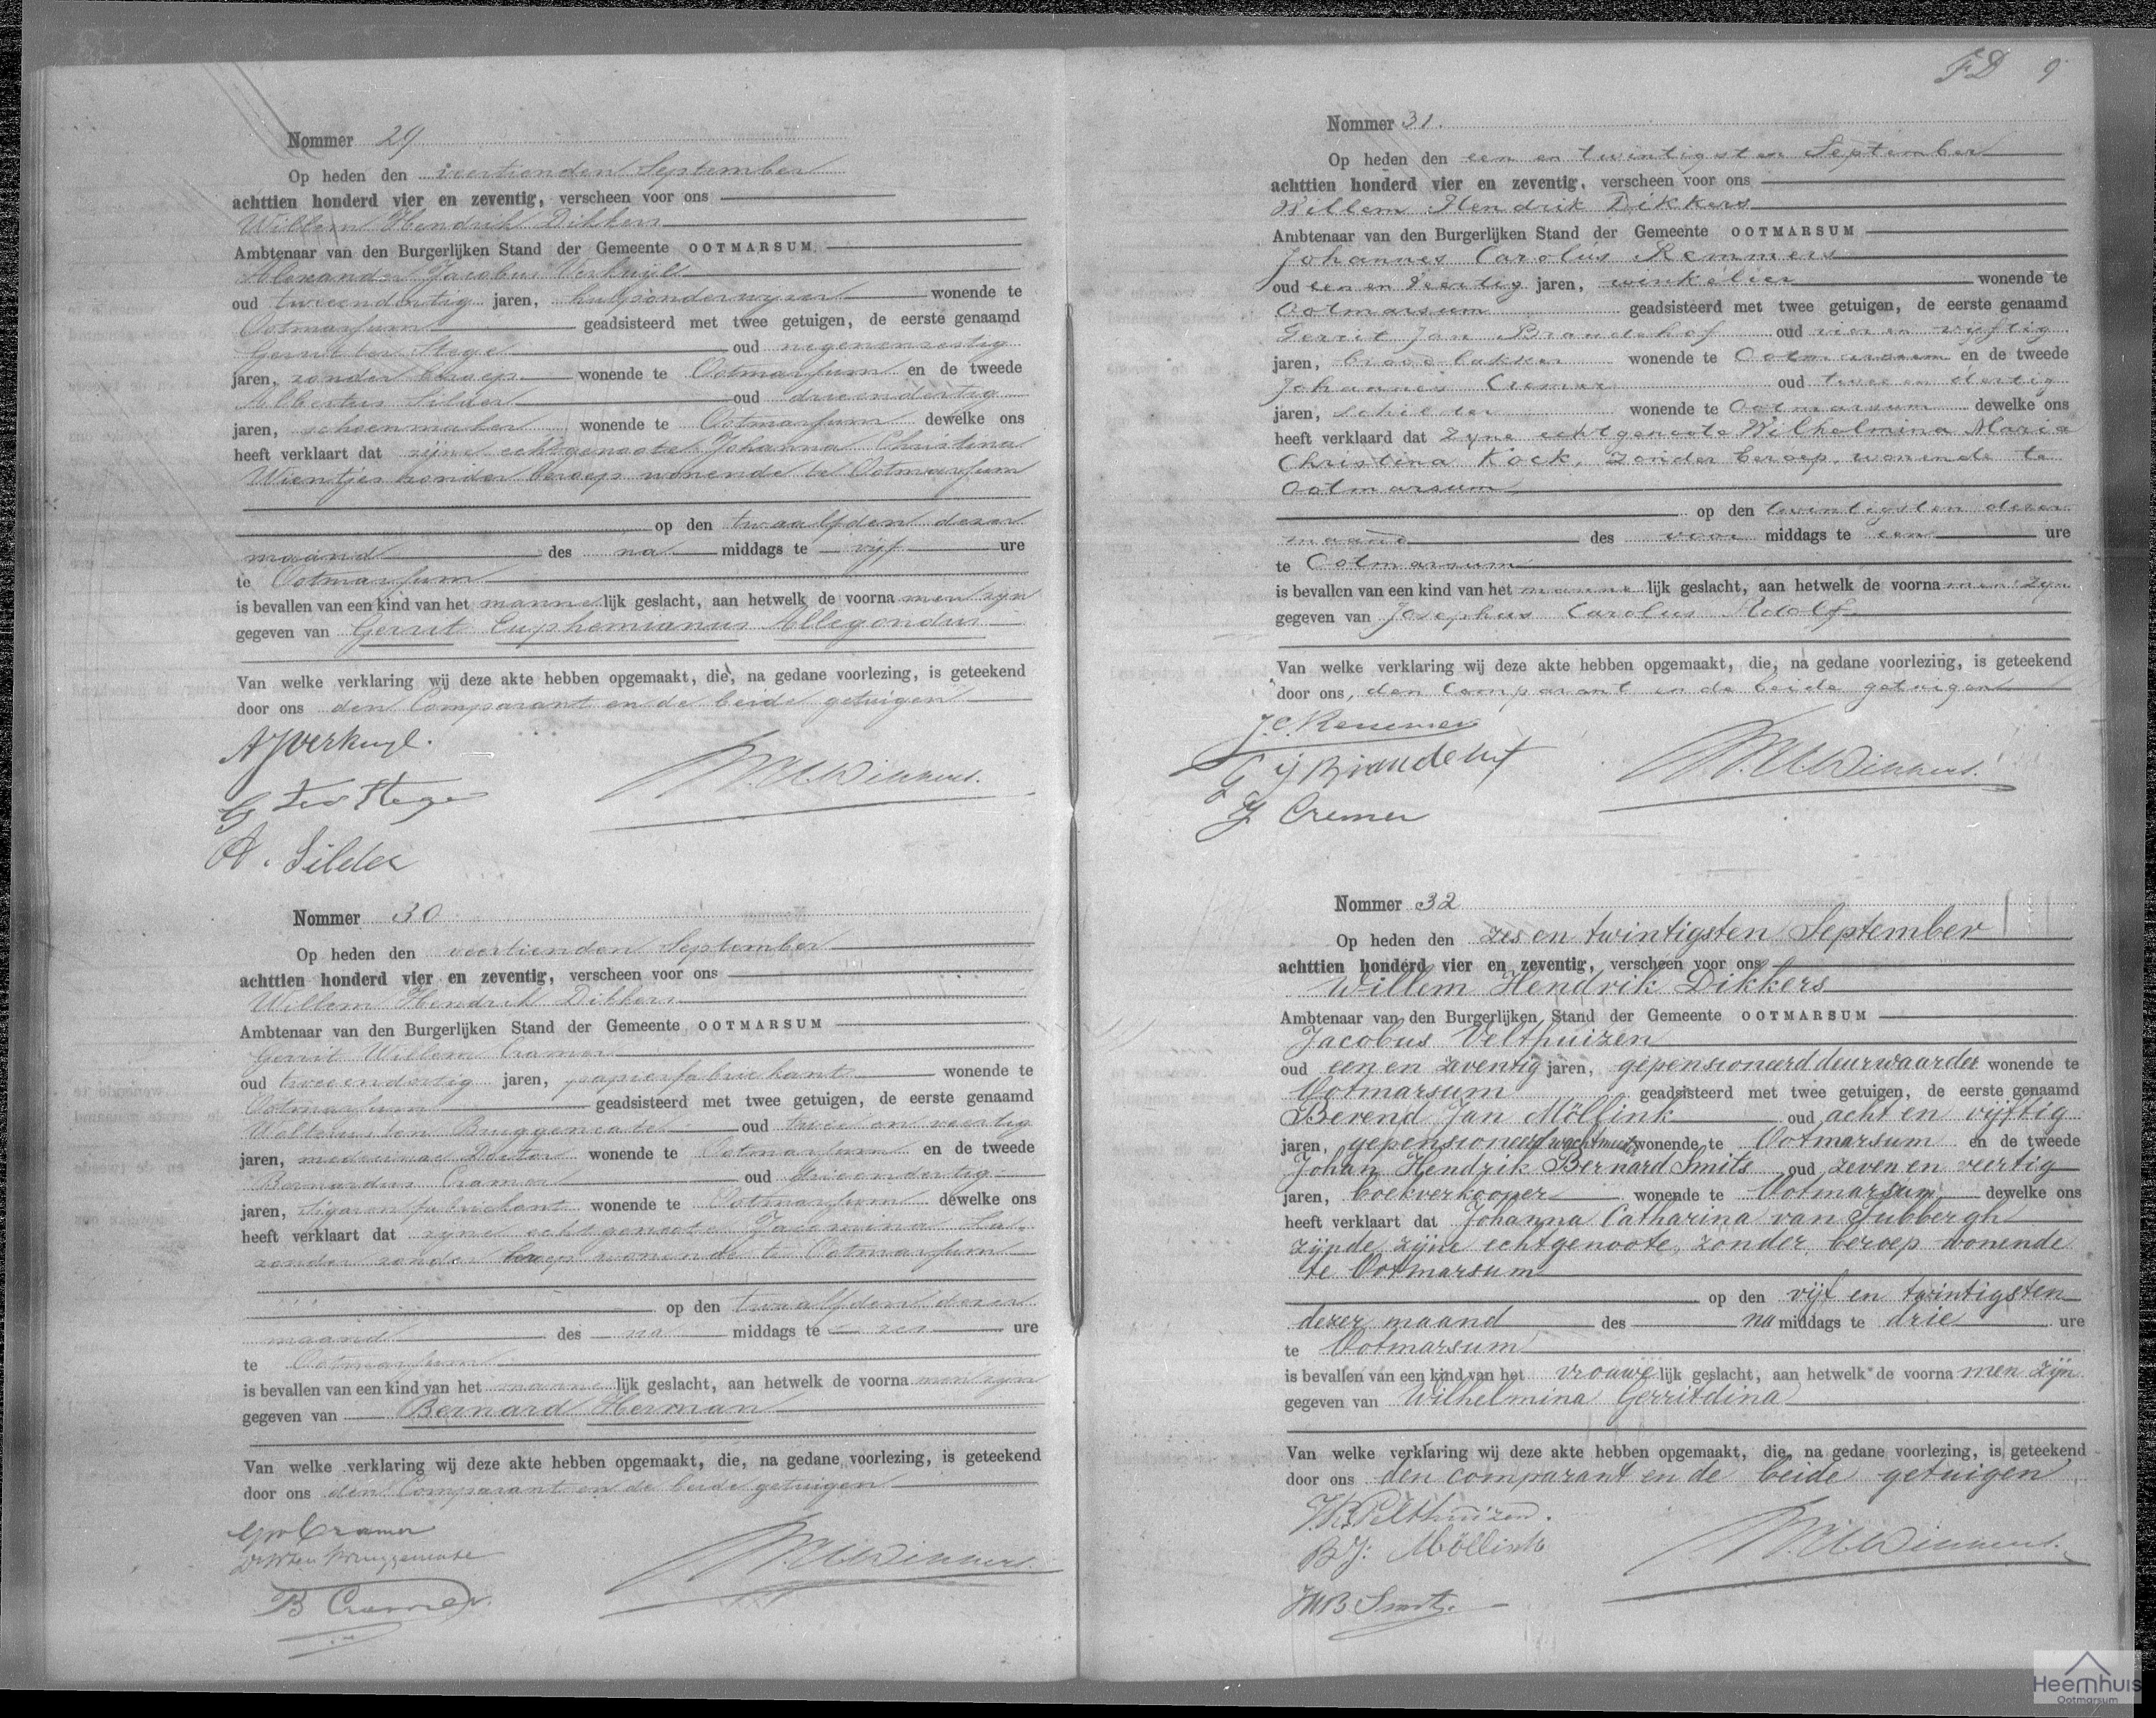 Nommer 29
Op heden den veertienden September
achttien honderd vier en zeventig, verscheen voor ons
Willem Hendrik Dikkers
Ambtenaar van den Burgerlijken Stand der Gemeente OOTMARSUM
Alexander Jacobus Verkuijl
oud tweeendertig jaren, hulponderwyzer wonende te
Ootmarsum geadsisteerd met twee getuigen, de eerste genaamd
Gerrit ter Stege oud negenenzestig
jaren, zonder beroep wonende te Ootmarsum en de tweede
Albertus Silder oud drieendertig
jaren, schoenmaker wonende te Ootmarsum dewelke ons
heeft verklaart dat zijne echtgenoote Johanna Christina
Wientjes zonder beroep wonende te Ootmarsum
op den twaalfden dezer
maand des na middags te vijf ure
te Ootmarsum
is bevallen van een kind van het manne lijk geslacht, aan hetwelk de voorna men zijn
gegeven van Gerrit Euphemianus Allegondus
Van welke verklaring wij deze akte hebben opgemaakt, die, na gedane voorlezing, is geteekend
door ons den Comparant en de beide getuigen
AJVerkuyl.
G ter Stege
A. Silder
Nommer 30
Op heden den veertienden September
achttien honderd vier en zeventig, verscheen voor ons
Willem Hendrik Dikkers
Ambtenaar van den Burgerlijken Stand der Gemeente OOTMARSUM
Gerrit Willem Cramer
oud tweeendertig jaren, papierfabriekant wonende te
Ootmarsum geadsisteerd met twee getuigen, de eerste genaamd
Wolterus ten Bruggencate oud twee en veertig
jaren, medicinae Doctor wonende te Ootmarsum en de tweede
Bernardus Cramer oud drieendertig
jaren, Sigarenfabriekant wonende te Ootmarsum dewelke ons
heeft verklaart dat zyne echtgenoote Jacomina
zonder beroep wonende te Ootmarsum
op den twaalfden dezer
maand des na middags te zes ure
te Ootmarsum
is bevallen van een kind van het manne lijk geslacht, aan hetwelk de voorna men zijn
gegeven van Bernard Herman
Van welke verklaring wij deze akte hebben opgemaakt, die, na gedane voorlezing, is geteekend
door ons den Comparant en de beide getuigen
GWCramer
Dr W ten Bruggencate
B Cramer
FD 9
Nommer 31.
Op heden den een en twintigsten September
achttien honderd vier en zeventig, verscheen voor ons
Willem Hendrik Dikkers
Ambtenaar van den Burgerlijken Stand der Gemeente OOTMARSUM
Johannes Carolus Remmers
oud een en veertig jaren, winkelier wonende te
Ootmarsum geadsisteerd met twee getuigen, de eerste genaamd
Gerrit Jan Brandehof oud vier en vyftig
jaren, broodbakker wonende te Ootmarsum en de tweede
Johannes Cremer oud twee en dertig
jaren, schilder wonende te Ootmarsum dewelke ons
heeft verklaard dat zyne echtgenoote Wilhelmina Maria
Christina Kock, zonder beroep, wonende te
Ootmarsum
op den twintigsten dezer
maand des voor middags te een ure
te Ootmarsum
is bevallen van een kind van het manne lijk geslacht, aan hetwelk de voorna men zyn
gegeven van Josephus Carolus Rdolf
Van welke verklaring wij deze akte hebben opgemaakt, die, na gedane voorlezing, is geteekend
door ons, den comparant en de beide getuigen
J.C. Remmers
G J Brandehof
J Cremer
Nommer 32
Op heden den zes en twintigsten September
achttien honderd vier en zeventig, verscheen voor ons
Willem Hendrik Dikkers
Ambtenaar van den Burgerlijken Stand der Gemeente OOTMARSUM
Jacobus Velthuizen
oud een en zeventig jaren, gepensioneerd deurwaarder wonende te
Ootmarsum geadsisteerd met twee getuigen, de eerste genaamd
Berend Jan Möllink oud acht en vijftig
jaren, gepensioneerd wachtmeester wonende te Ootmarsum en de tweede
Johan Hendrik Bernard Smits oud zeven en veertig
jaren, boekverkooper wonende te Ootmarsum dewelke ons
heeft verklaart dat Johanna Catharina van Lubbergh
zijnde zijne echtgenoote, zonder beroep wonende
te Ootmarsum
op den vijf en twintigsten
dezer maand des na middags te drie ure
te Ootmarsum
is bevallen van een kind van het vrouwe lijk geslacht, aan hetwelk de voorna men zijn
gegeven van Wilhelmina Gerritdina
Van welke verklaring wij deze akte hebben opgemaakt, die, na gedane voorlezing, is geteekend
door ons den comparant en de beide getuigen
Velthuizen.
BJ. Möllink
JHB Smits.
Heemhuis
Ootmarsum